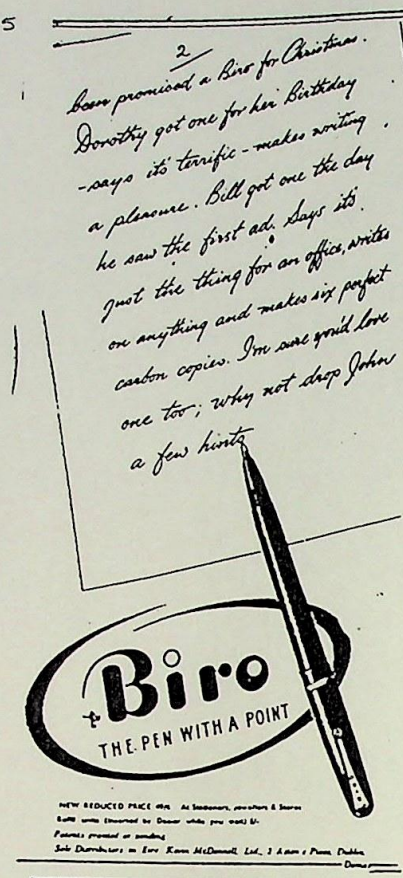 5
2
been promised a Biro for Christmas.
Dorothy got one for her Birthday
- says it's terrific - makes writing
a pleasure. Bill got one the day
he saw the first ad. Says it's
just the thing for an office, writes
on anything and makes six perfect
carbon copies. I'm sure you'd love
one too; why not drop John
a few hints
Biro
THE PEN WITH A POINT
NEW REDUCED PRICE At Stationers, Jewellers & Stores
units (inserted by Dealer while you wait)
Patents granted or pending
Sole Distributors in Eire Kevin McDonnell Ltd., Dublin